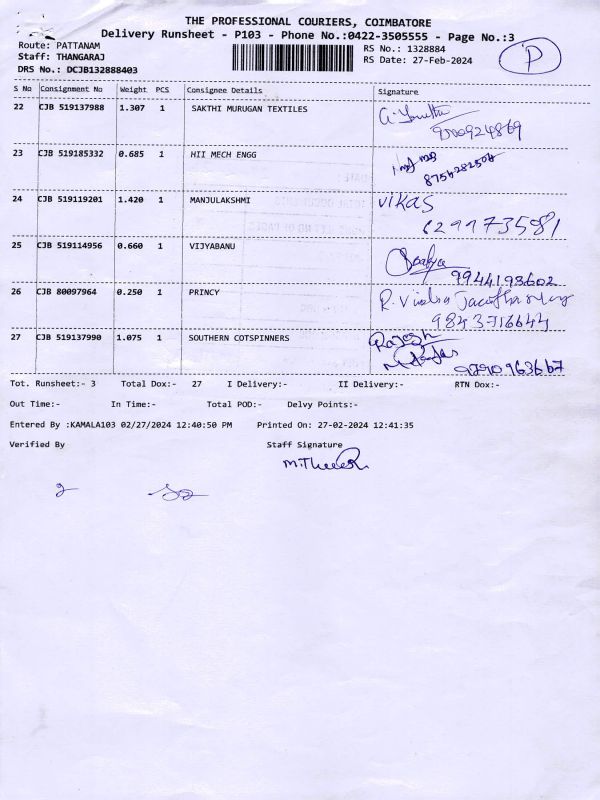 THE PROFESSIONAL COURIERS, COIMBATORE
Delivery Runsheet - P103 - Phone No.:0422-3505555 - Page No.:3
P
Route: PATTANAM RS No.: 1328884
Staff: THANGARAJ RS Date: 27-Feb-2024
DRS No.: DCJB132888403
S No Consignment No Weight PCS Consignee Details Signature
22 CJB 519137988 1.307 1 SAKTHI MURUGAN TEXTILES
9500924869
23 CJB 519185332 0.685 1 HII MECH ENGG
8754282504
24 CJB 519119201 1.420 1 MANJULAKSHMI VIKAS
6299773581
25 CJB 519114956 0.660 1 VIJYABANU
9944193602
26 CJB 80097964 0.250 1 PRINCY R.
9843716644
27 CJB 519137990 1.075 1 SOUTHERN COTSPINNERS Rajesh
9790963667
Tot. Runsheet:- 3 Total Dox:- 27 I Delivery:- II Delivery:- RTN Dox:-
Out Time:- In Time:- Total POD:- Delvy Points:-
Entered By :KAMALA103 02/27/2024 12:40:50 PM Printed On: 27-02-2024 12:41:35
Verified By Staff Signature